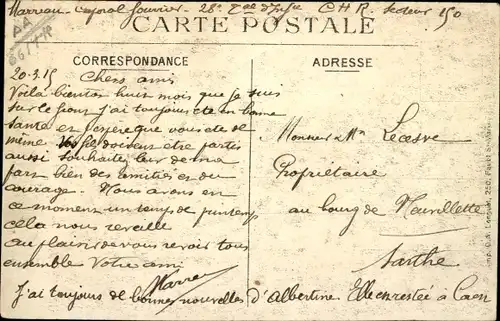 Marreau - Caporal fourrier - 28e Tal d'Infie C H R. Secteur 150
CARTE POSTALE
CORRESPONDANCE
ADRESSE
20-3-15 Chers amis
Voilà bientôt huit mois que je suis
sur le front j'ai toujours été en bonne
santé et j'espère que vous êtes de
même Vos fils doivent être partis
aussi souhaitez leur de ma
part bien des amitiés et du
courage. Nous avons en
ce moment un temps de printemps
cela nous réveille
au plaisir de vous revoir tous
ensemble Votre ami
J'ai toujours de bonnes nouvelles d'Albertine Elle est restée à Caen
Monsieur & Mme Lecesve
Propriétaire
au bourg de Neuvillette
Sarthe